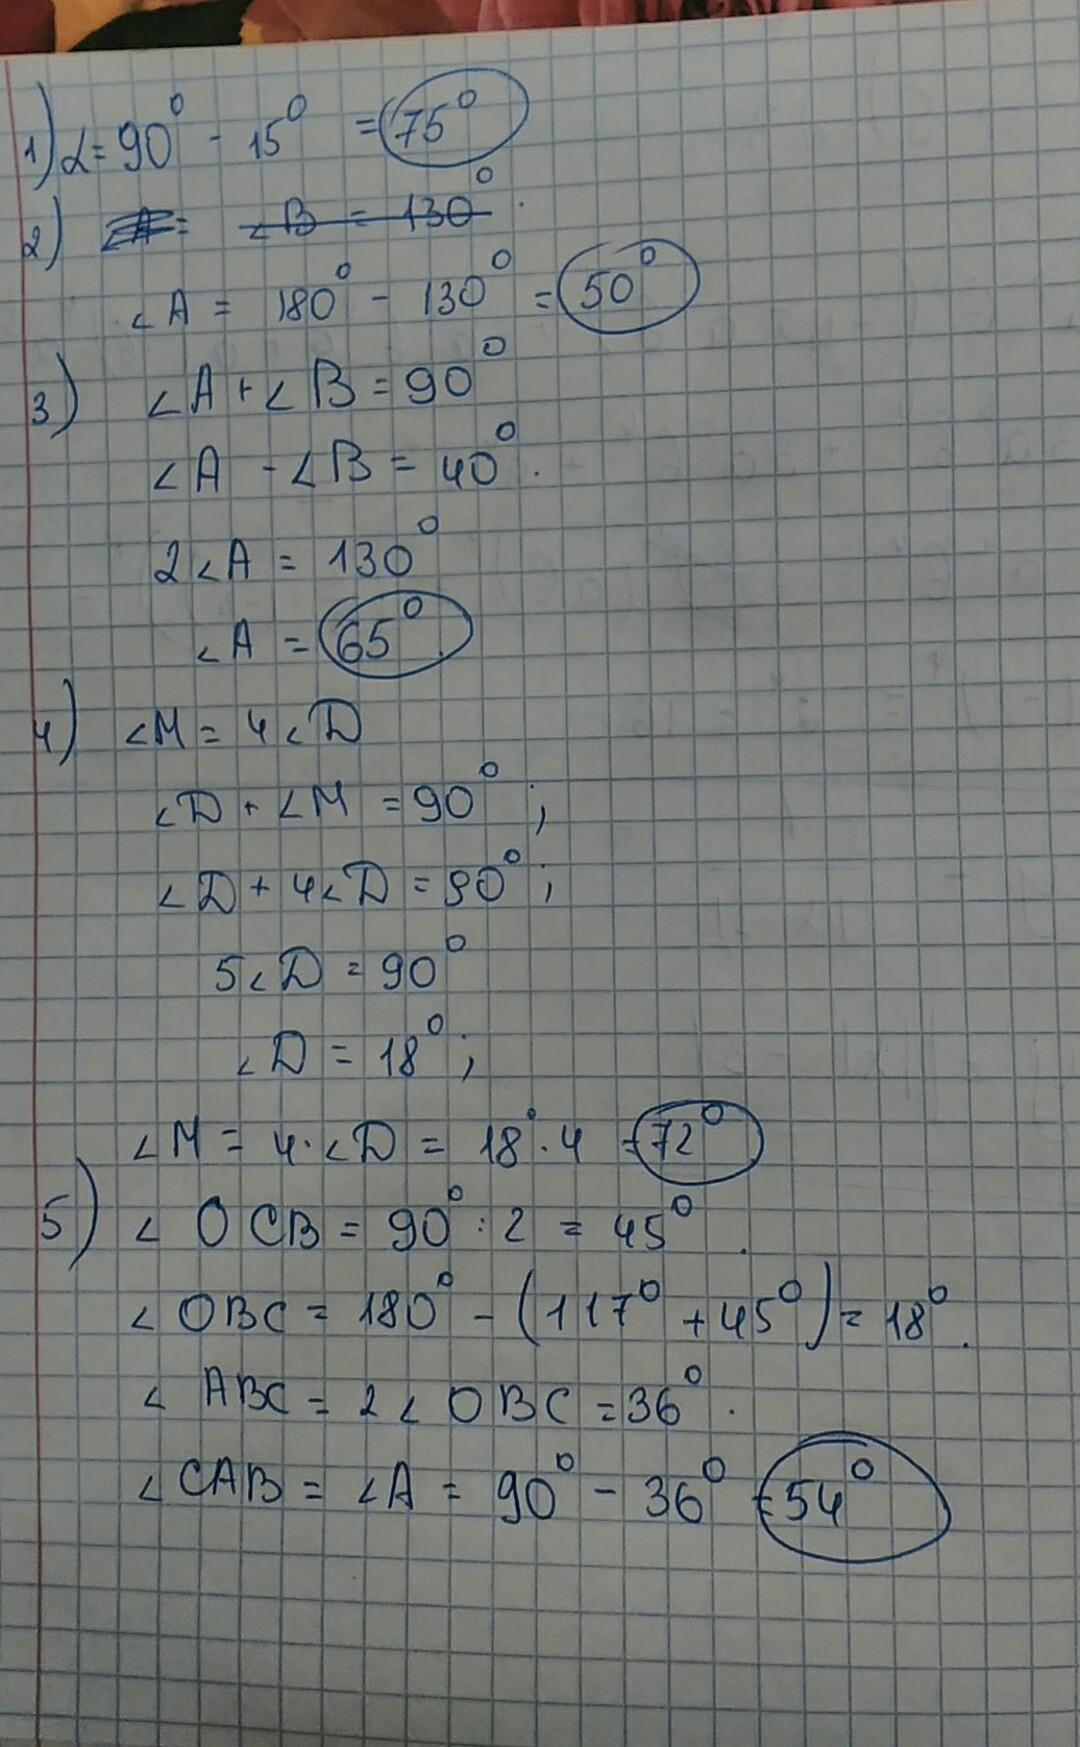 1) α = 90° - 15° = 75°
2) ∠B = 130°
∠A = 180° - 130° = 50°
3) ∠A + ∠B = 90°
∠A - ∠B = 40°.
2∠A = 130°
∠A = 65°
4) ∠M = 4∠D
∠D + ∠M = 90°;
∠D + 4∠D = 90°;
5∠D = 90°
∠D = 18°;
∠M = 4·∠D = 18°·4 = 72°
5) ∠OCB = 90° : 2 = 45°.
∠OBC = 180° - (117° + 45°) = 18°.
∠ABC = 2∠OBC = 36°.
∠CAB = ∠A = 90° - 36° = 54°